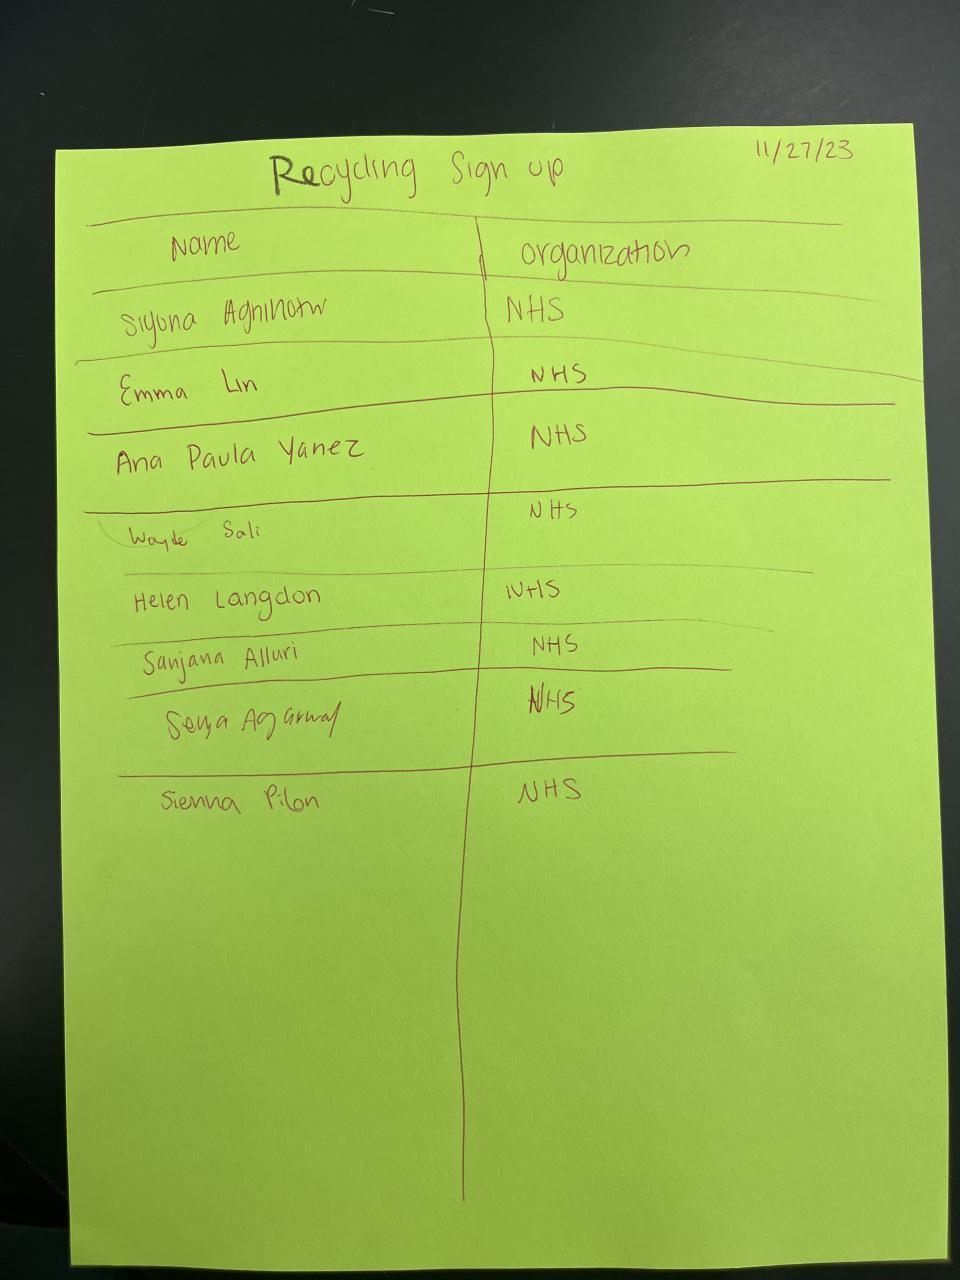 Recycling Sign up 11/27/23
Name Organization
Siyona Agnihotri NHS
Emma Lin NHS
Ana Paula Yanez NHS
Wayde Sali NHS
Helen Langdon NHS
Sanjana Alluri NHS
Agarwal NHS
Sienna Pilon NHS